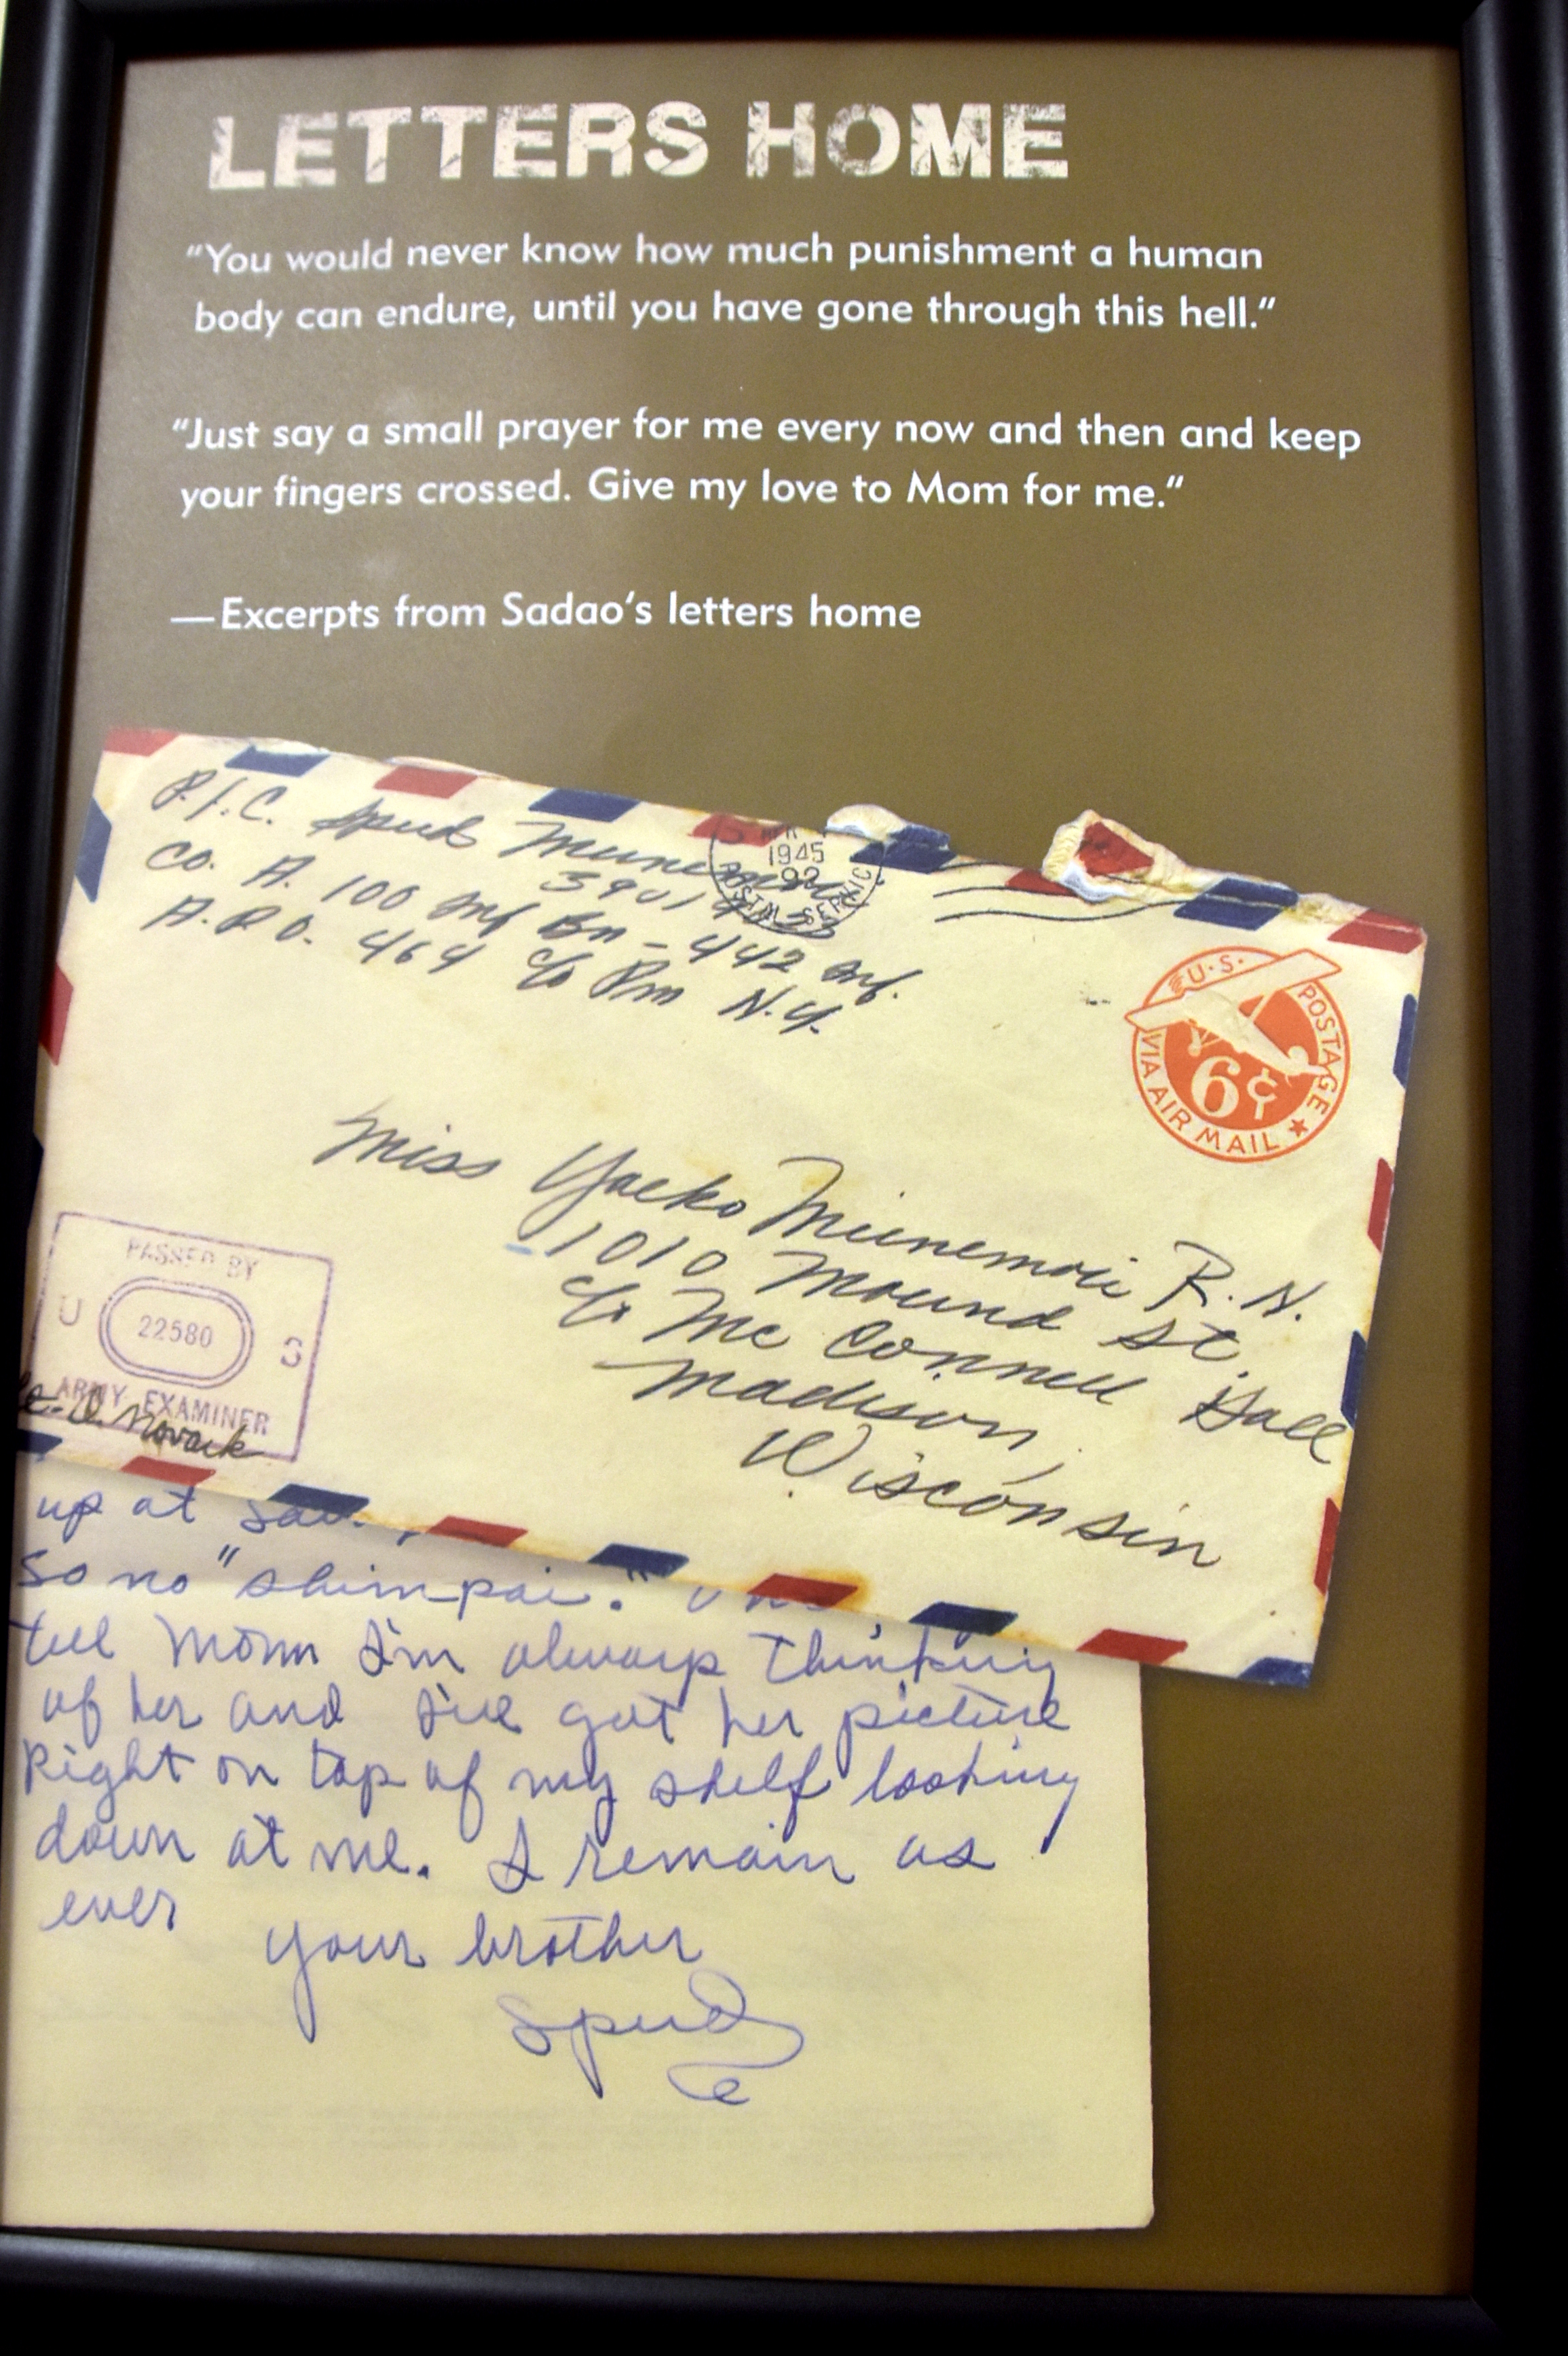 LETTERS HOME
“You would never know how much punishment a human
body can endure, until you have gone through this hell.”
“Just say a small prayer for me every now and then and keep
your fingers crossed. Give my love to Mom for me.”
—Excerpts from Sadao’s letters home
P.f.C. Spud Munemori
Co. A. 100 Inf Bn – 442 Inf.
A.P.O. 464 c/o Pm N.Y.
1945
U.S. POSTAGE
6¢
VIA AIR MAIL
Miss Yaeko Munemori R.N.
1010 Mound St.
c/o Mc Connell Hall
Madison,
Wisconsin
PASSED BY
U 22580 S
ARMY EXAMINER
Novack
up at
so no "shimpai."
tell Mom I'm always thinking
of her and I've got her picture
Right on top of my shelf looking
down at me. I remain as
ever
your brother
Spud